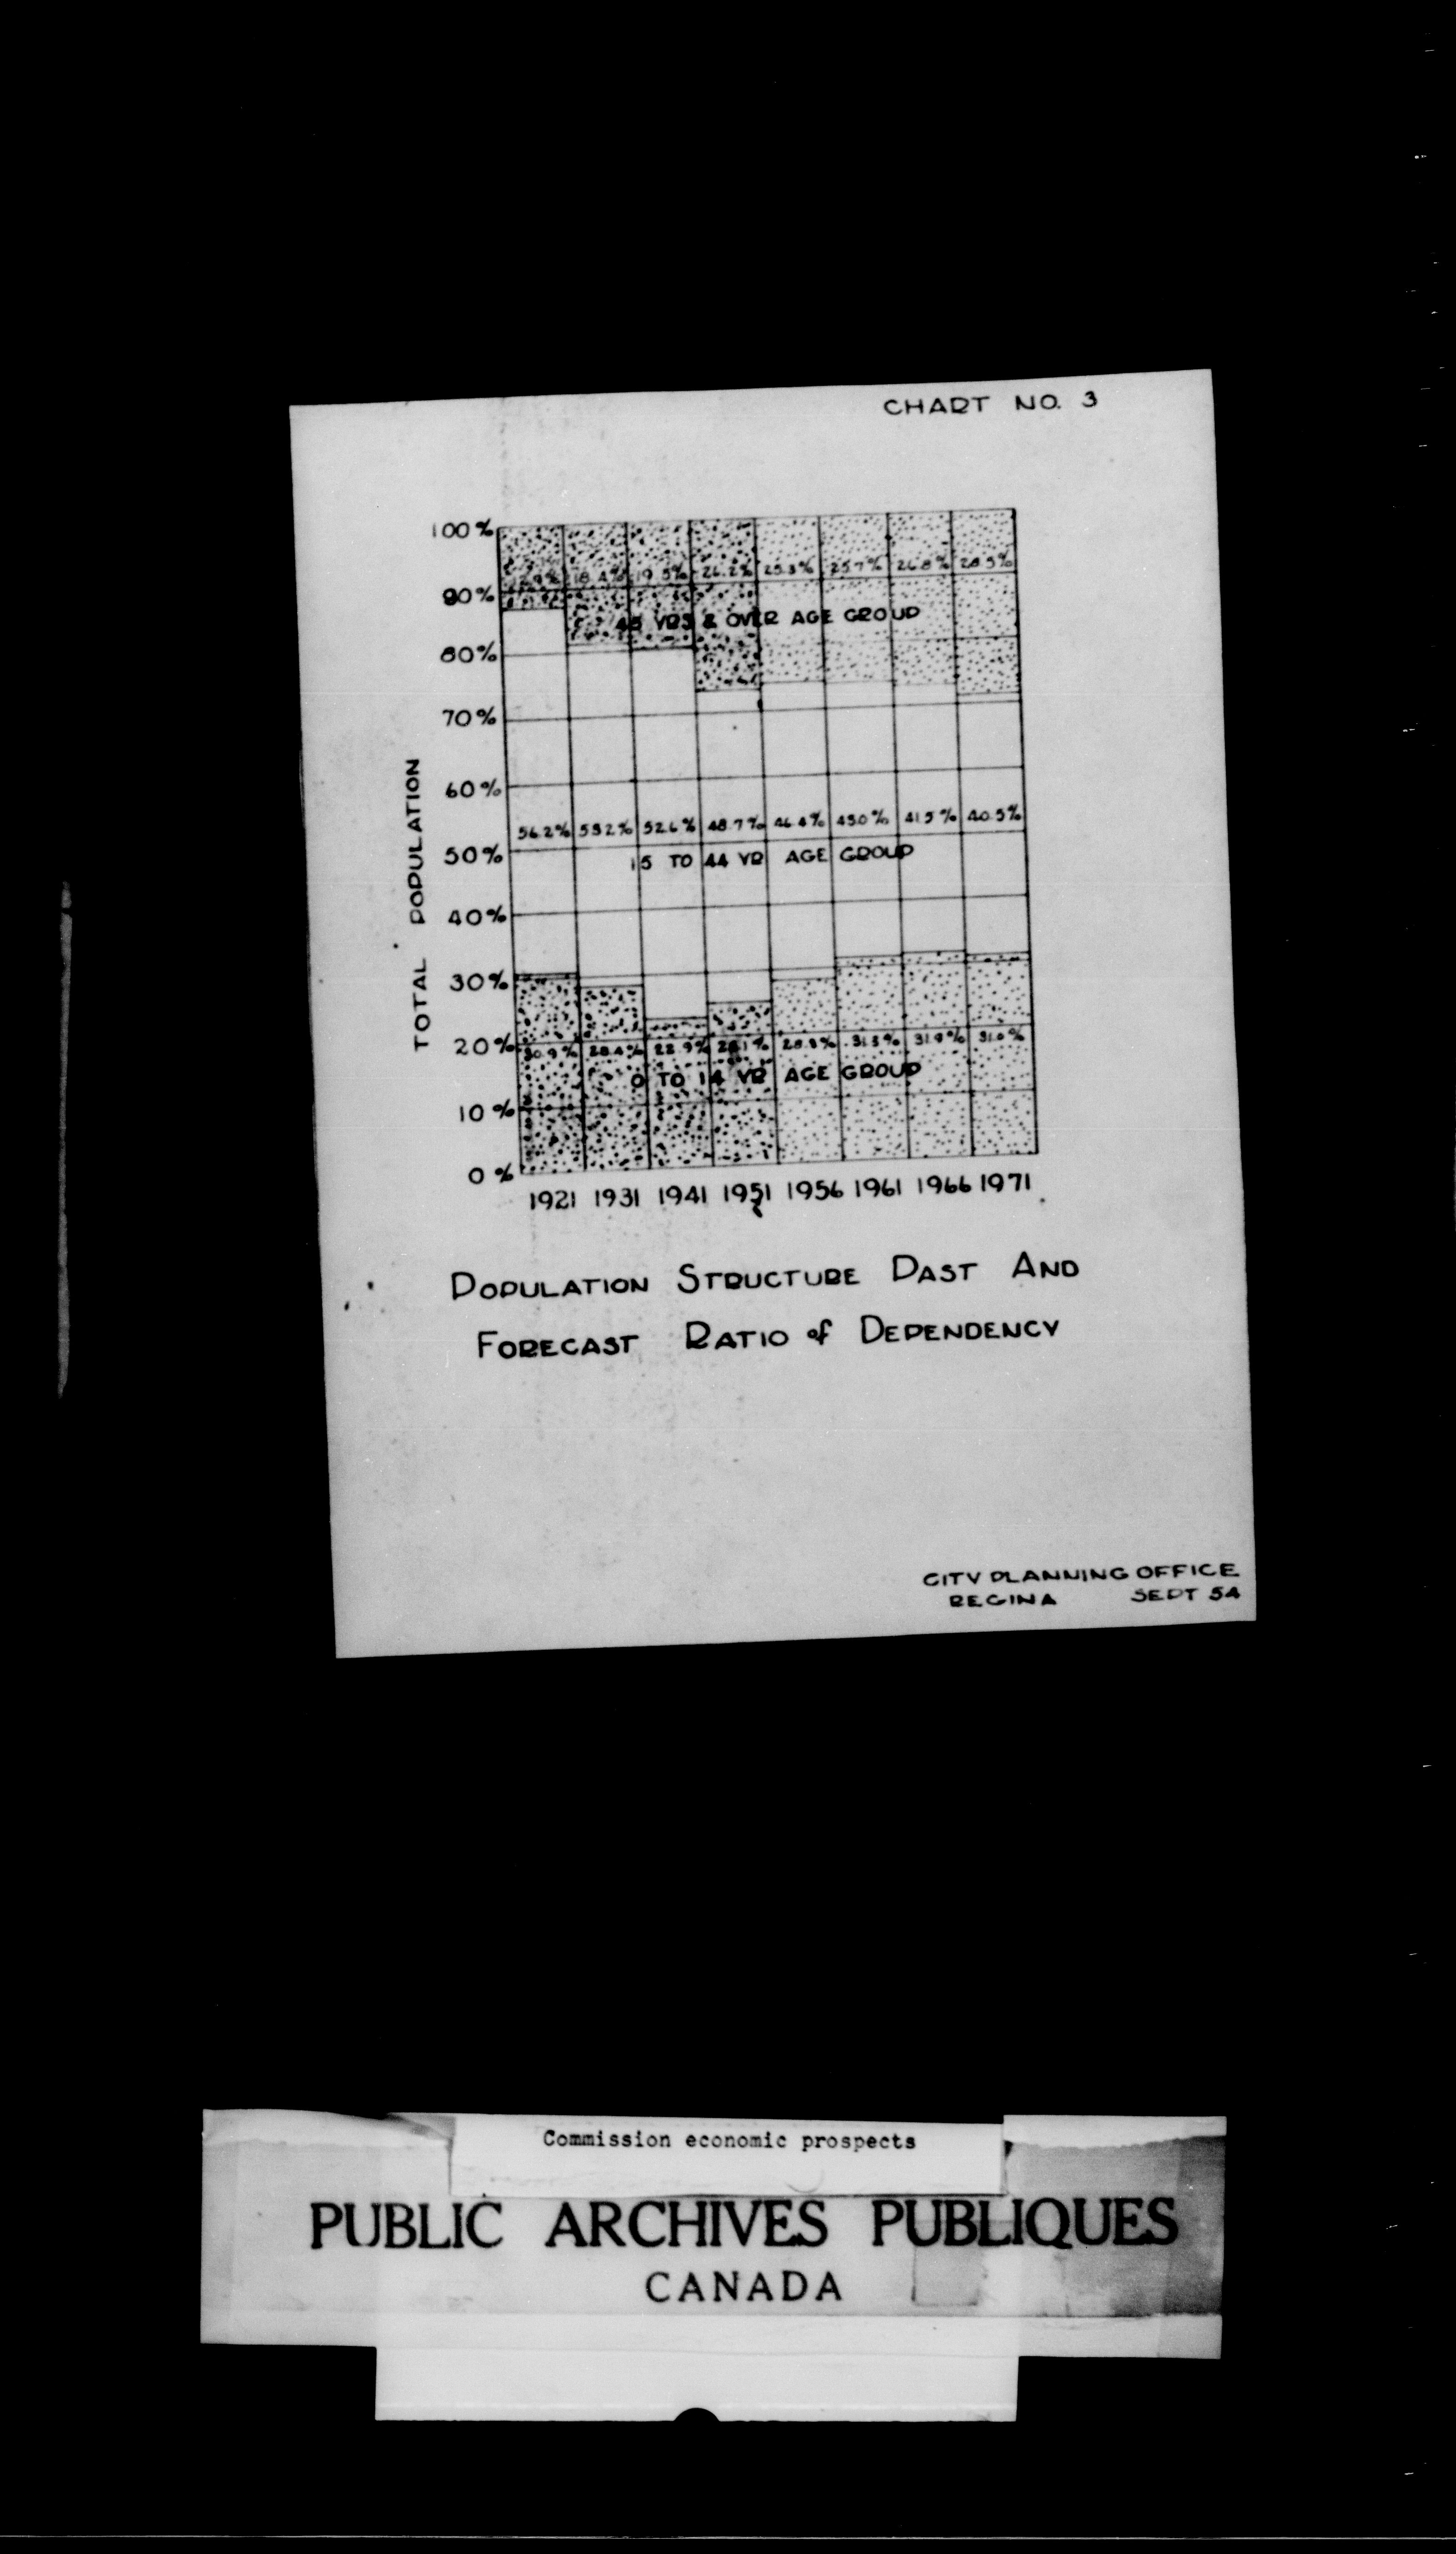 CHART NO. 3
100%
12.9% 18.4% 19.5% 26.2% 25.3% 25.7% 26.8% 28.5%
90%
45 YRS & OVER AGE GROUP
80%
70%
60%
56.2% 53.2% 52.6% 48.7% 46.4% 43.0% 41.5% 40.5%
50%
15 TO 44 YR AGE GROUP
40%
30%
20%
30.9% 28.4% 22.9% 28.3% 31.3% 31.9% 31.0%
0 TO 14 YR AGE GROUP
10%
0%
TOTAL POPULATION
1921 1931 1941 1951 1956 1961 1966 1971
POPULATION STRUCTURE PAST AND
FORECAST RATIO of DEPENDENCY
CITY PLANNING OFFICE
REGINA SEPT 54
Commission economic prospects
PUBLIC ARCHIVES PUBLIQUES
CANADA